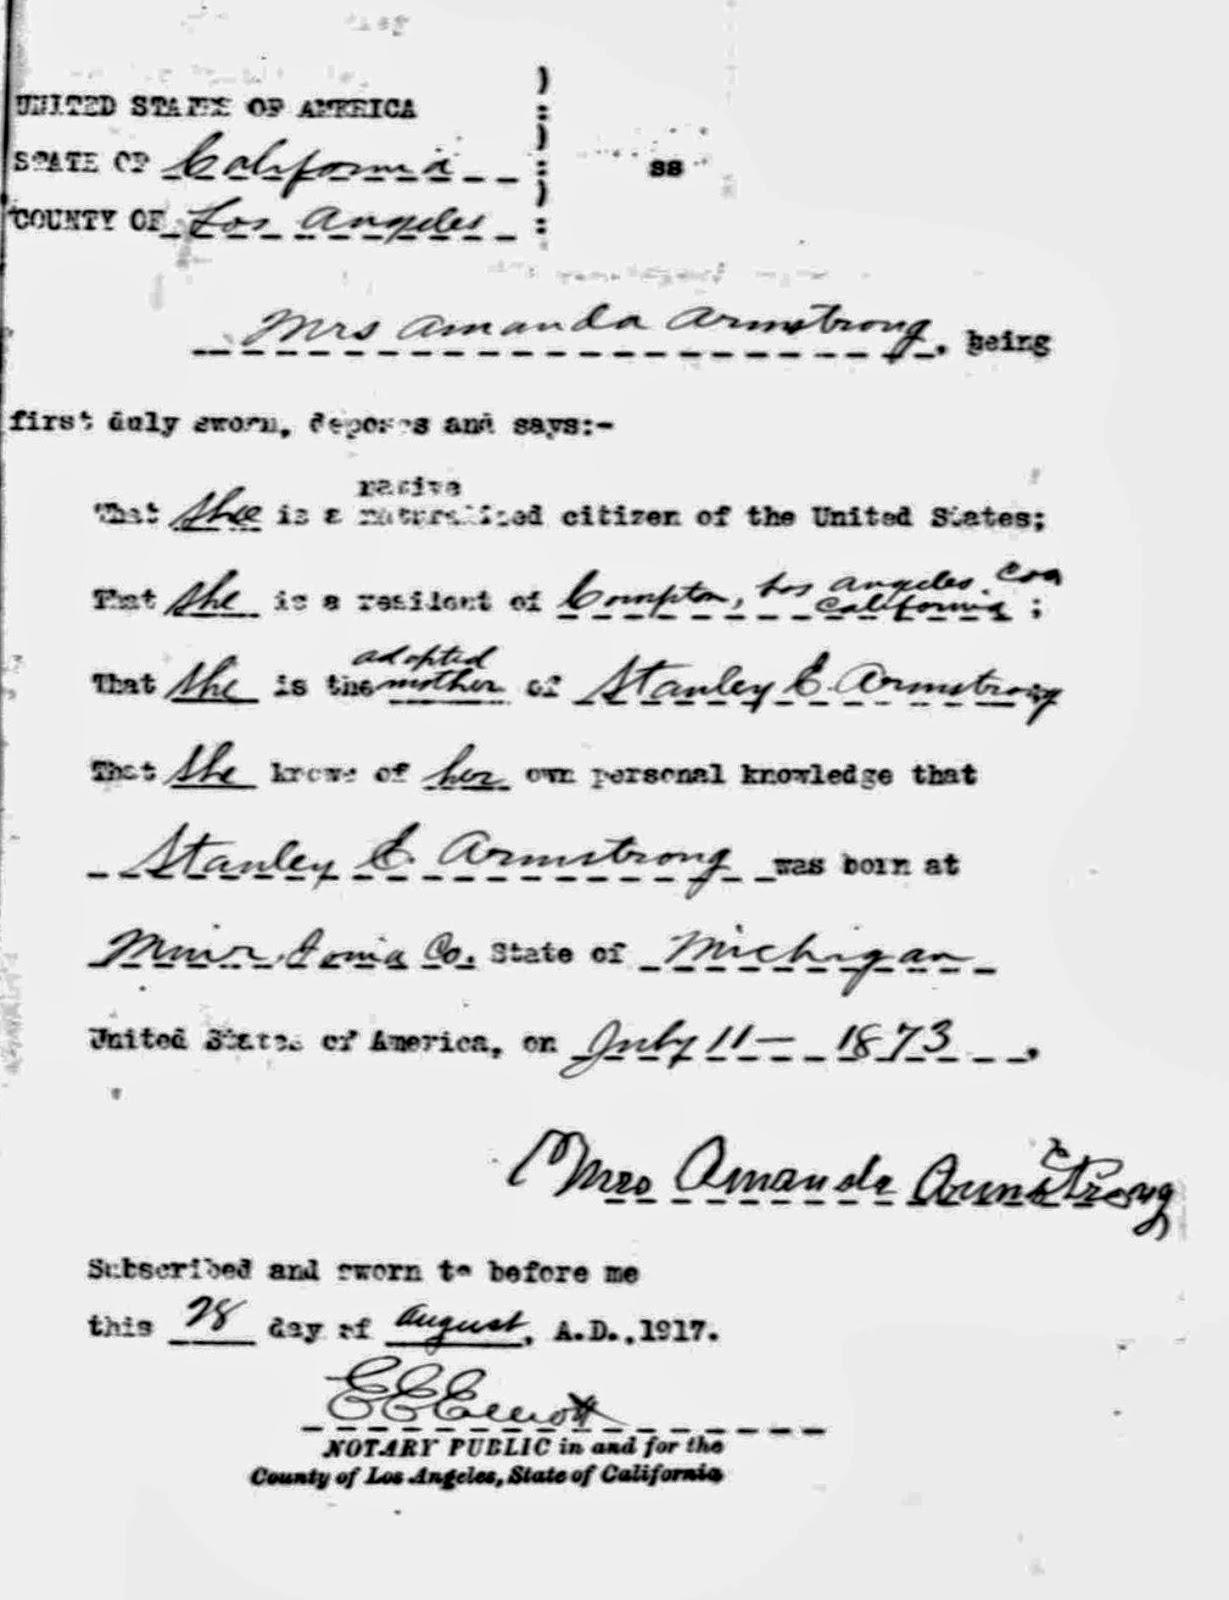 UNITED STATES OF AMERICA )
STATE OF California ) : ss
COUNTY OF Los Angeles ) :
Mrs Amanda Armstrong, being
first duly sworn, deposes and says:-
native
That she is a naturalized citizen of the United States;
That she is a resident of Compton, Los Angeles. Coa
California ;
adopted
That she is the mother of Stanley E. Armstrong
That she knows of her own personal knowledge that
Stanley E. Armstrong was born at
Muir, Ionia Co. State of Michigan
United States of America, on July 11 - 1873 .
Mrs Amanda Armstrong
Subscribed and sworn to before me
this 28 day of August, A.D.,1917.
E E Elliott
NOTARY PUBLIC in and for the
County of Los Angeles, State of California